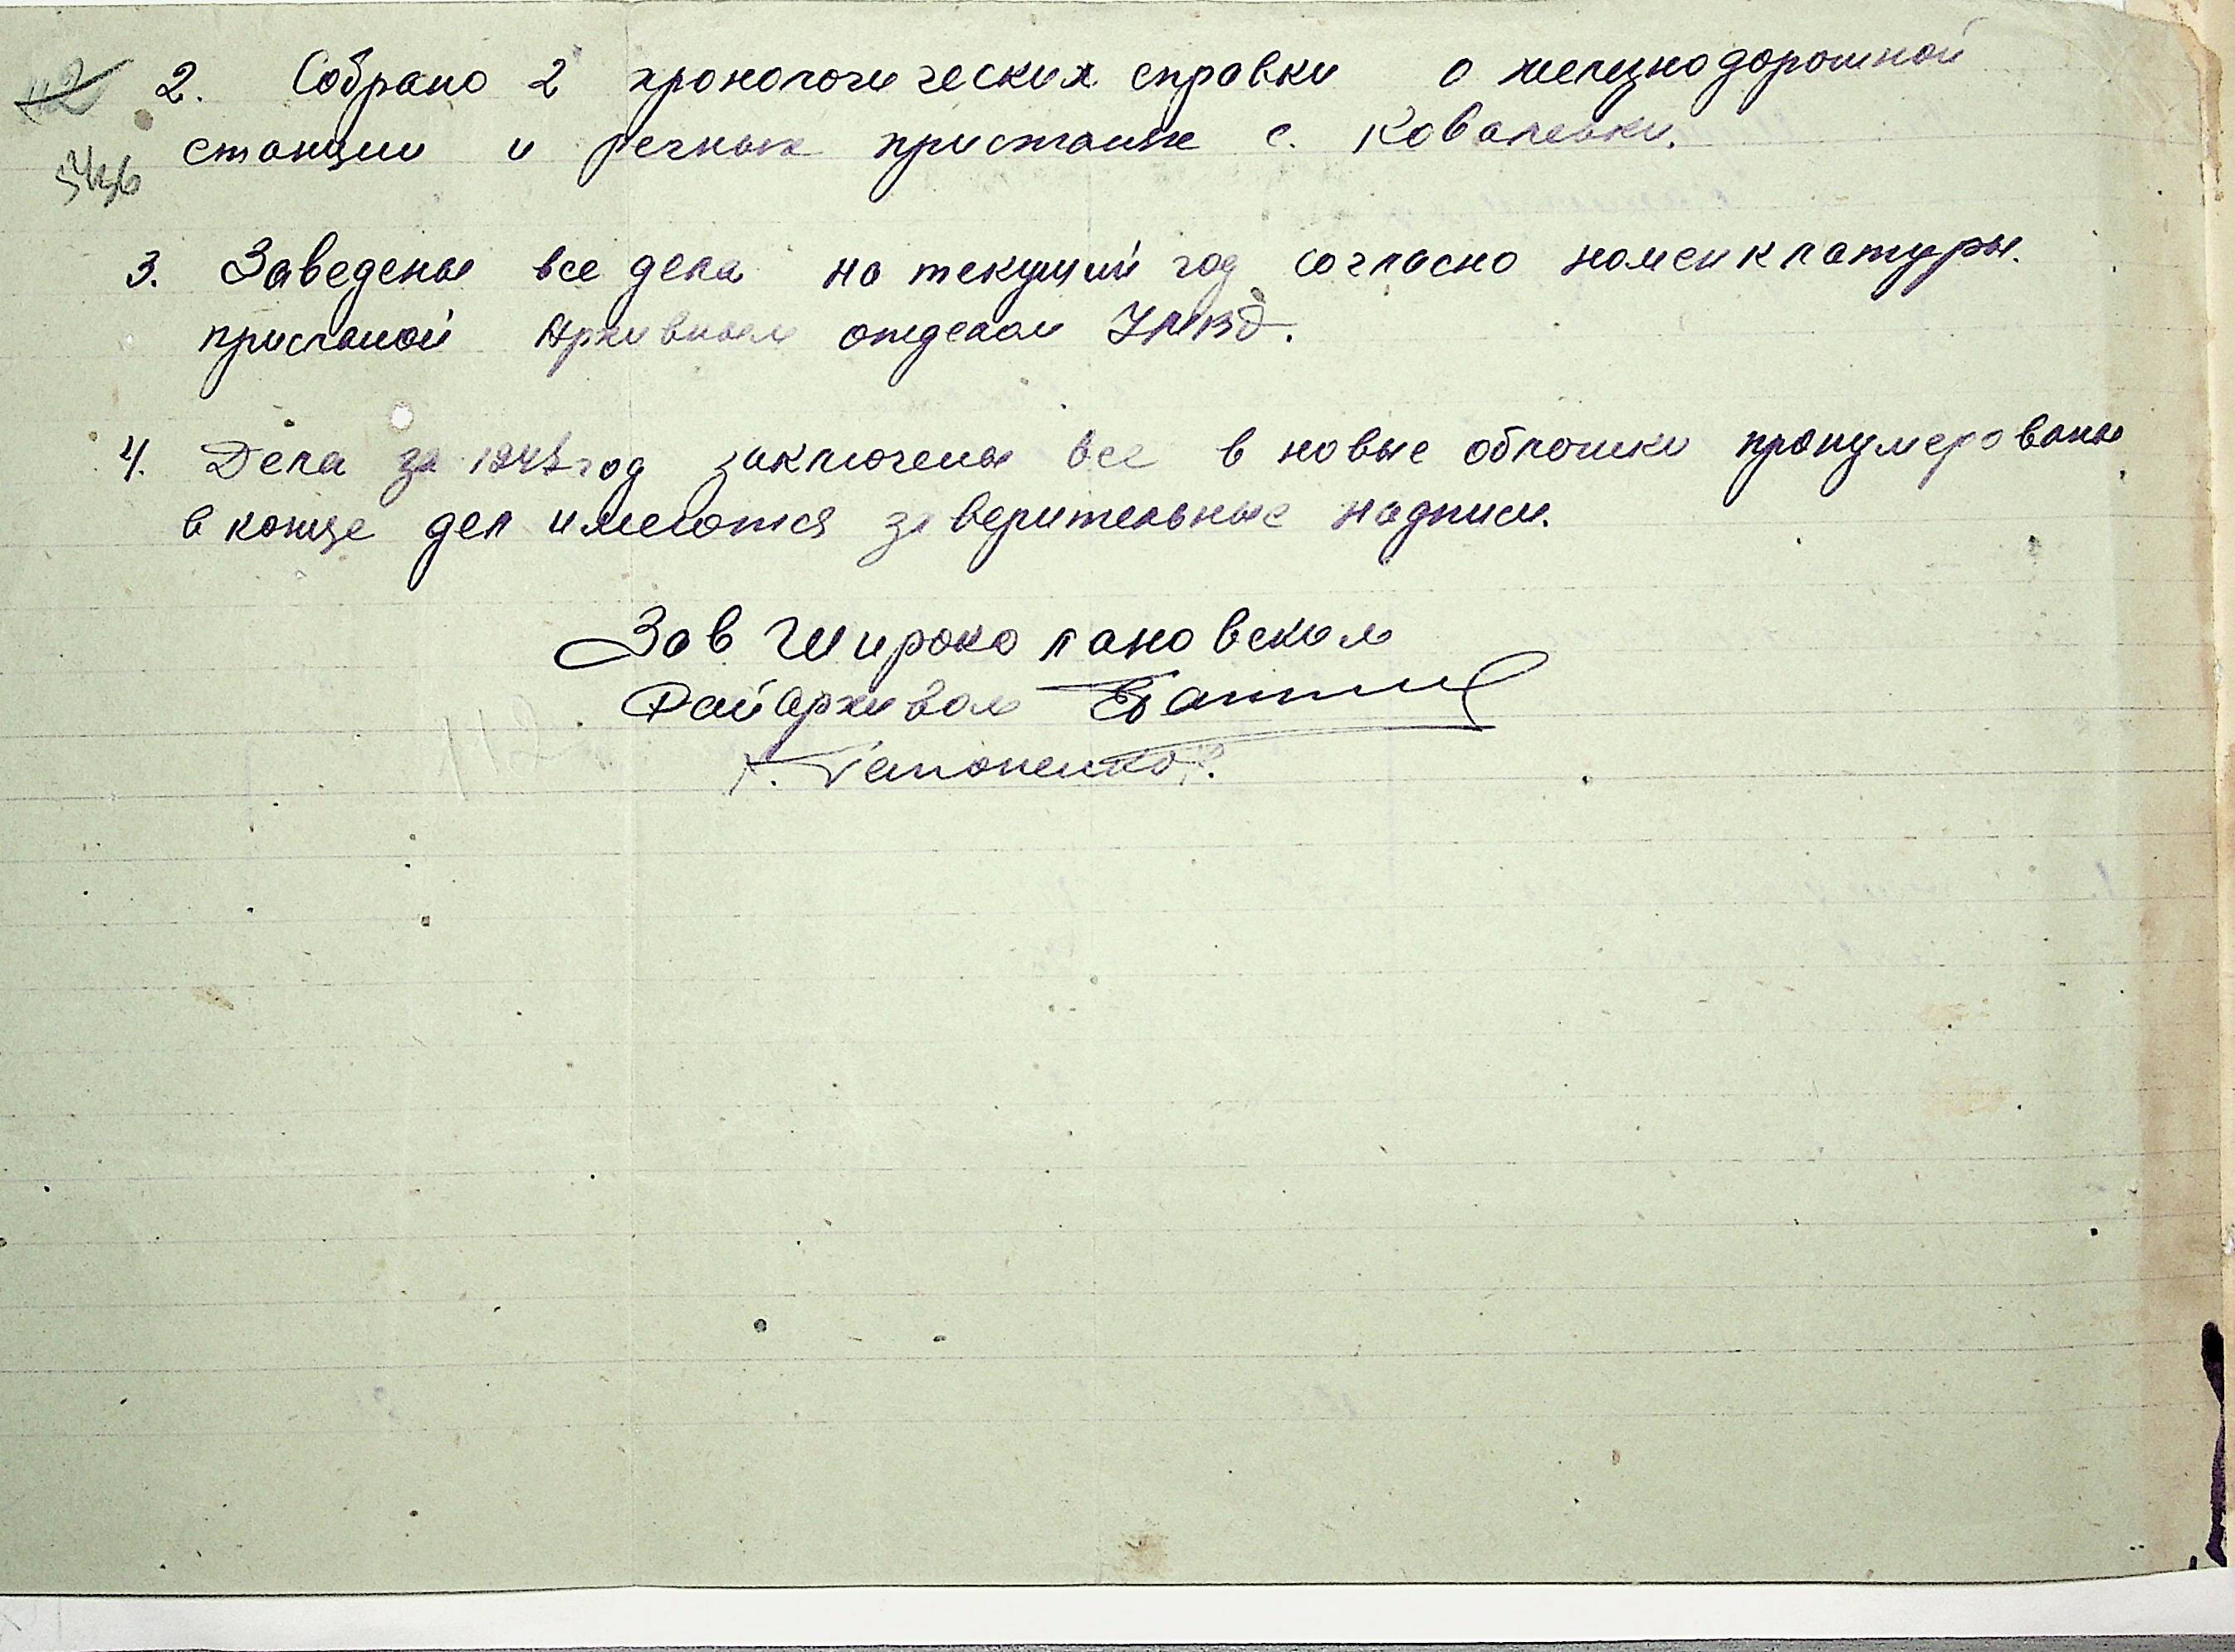 2. Собрано 2 хронологических справки о железнодорожной
станции и речных пристане с. Ковалевки.
3. Заведены все дела на текущий год согласно номенклатуры.
присланой Архивным отделом УМВД.
4. Дела за год заключены все в новые обложки пронумерованы
в конце дел имеются заверительные надписи.
Зав Широколановским
РайАрхивом
112